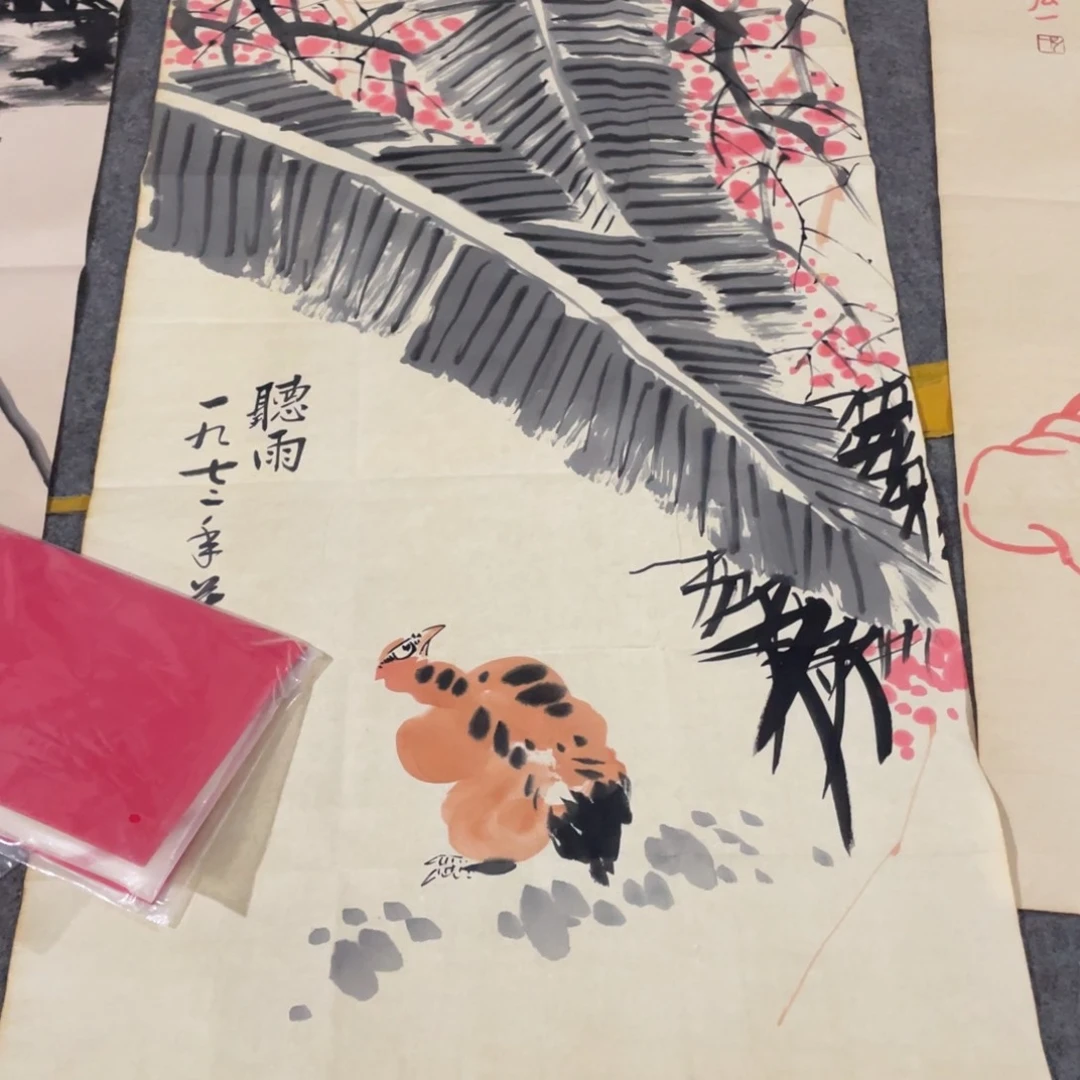 聽雨
一九七二年